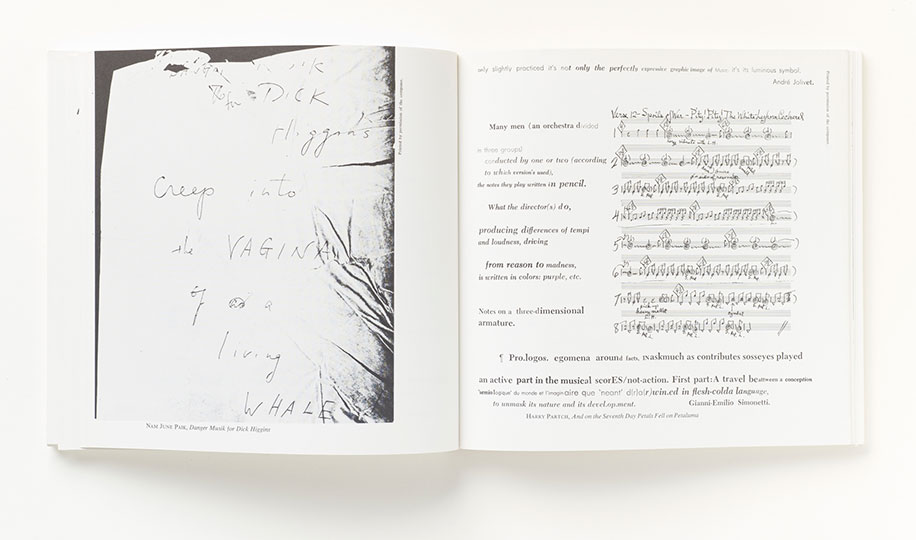 DICK
Higgins
Creep into
the VAGINA
of a
living
WHALE
Printed by permission of the composer.
NAM JUNE PAIK, Danger Musik for Dick Higgins
only slightly practiced it's not only the perfectly expressive graphic image of Music, it's its luminous symbol.
André Jolivet.
Many men (an orchestra divided
in three groups)
conducted by one or two (according
to which version's used),
the notes they play written in pencil.
What the director(s) do,
producing differences of tempi
and loudness, driving
from reason to madness,
is written in colors: purple, etc.
Notes on a three-dimensional
armature.
Verse 12 - Spoils of War - Pity! Pity! The White Leghorn Cockerel
1
2
3
4
5
6
7
8
Printed by permission of the composer.
¶ Pro.logos. egomena around facts, INaskmuch as contributes sosseyes played
an active part in the musical scorES/not-action. First part:A travel beattween a conception
du monde et l'imaginaire que 'neant' d(r)o(r)/win.ed in flesh-colda language,
to unmask its nature and its devel.op.ment.
Gianni-Emilio Simonetti.
HARRY PARTCH, And on the Seventh Day Petals Fell on Petaluma